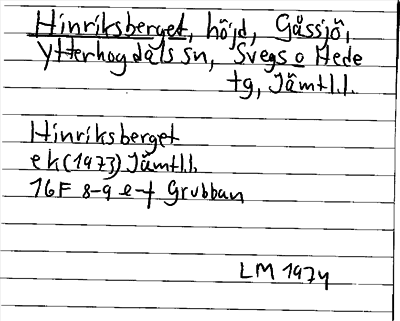 Hinriksberget, höjd, Gåssjö,
Ytterhogdals sn, Svegs o Hede
tg, Jämtl.l.
Hinriksberget
ek(1973) Jämtl.l.
16F 8-9 e-f Grubban
LM 1974